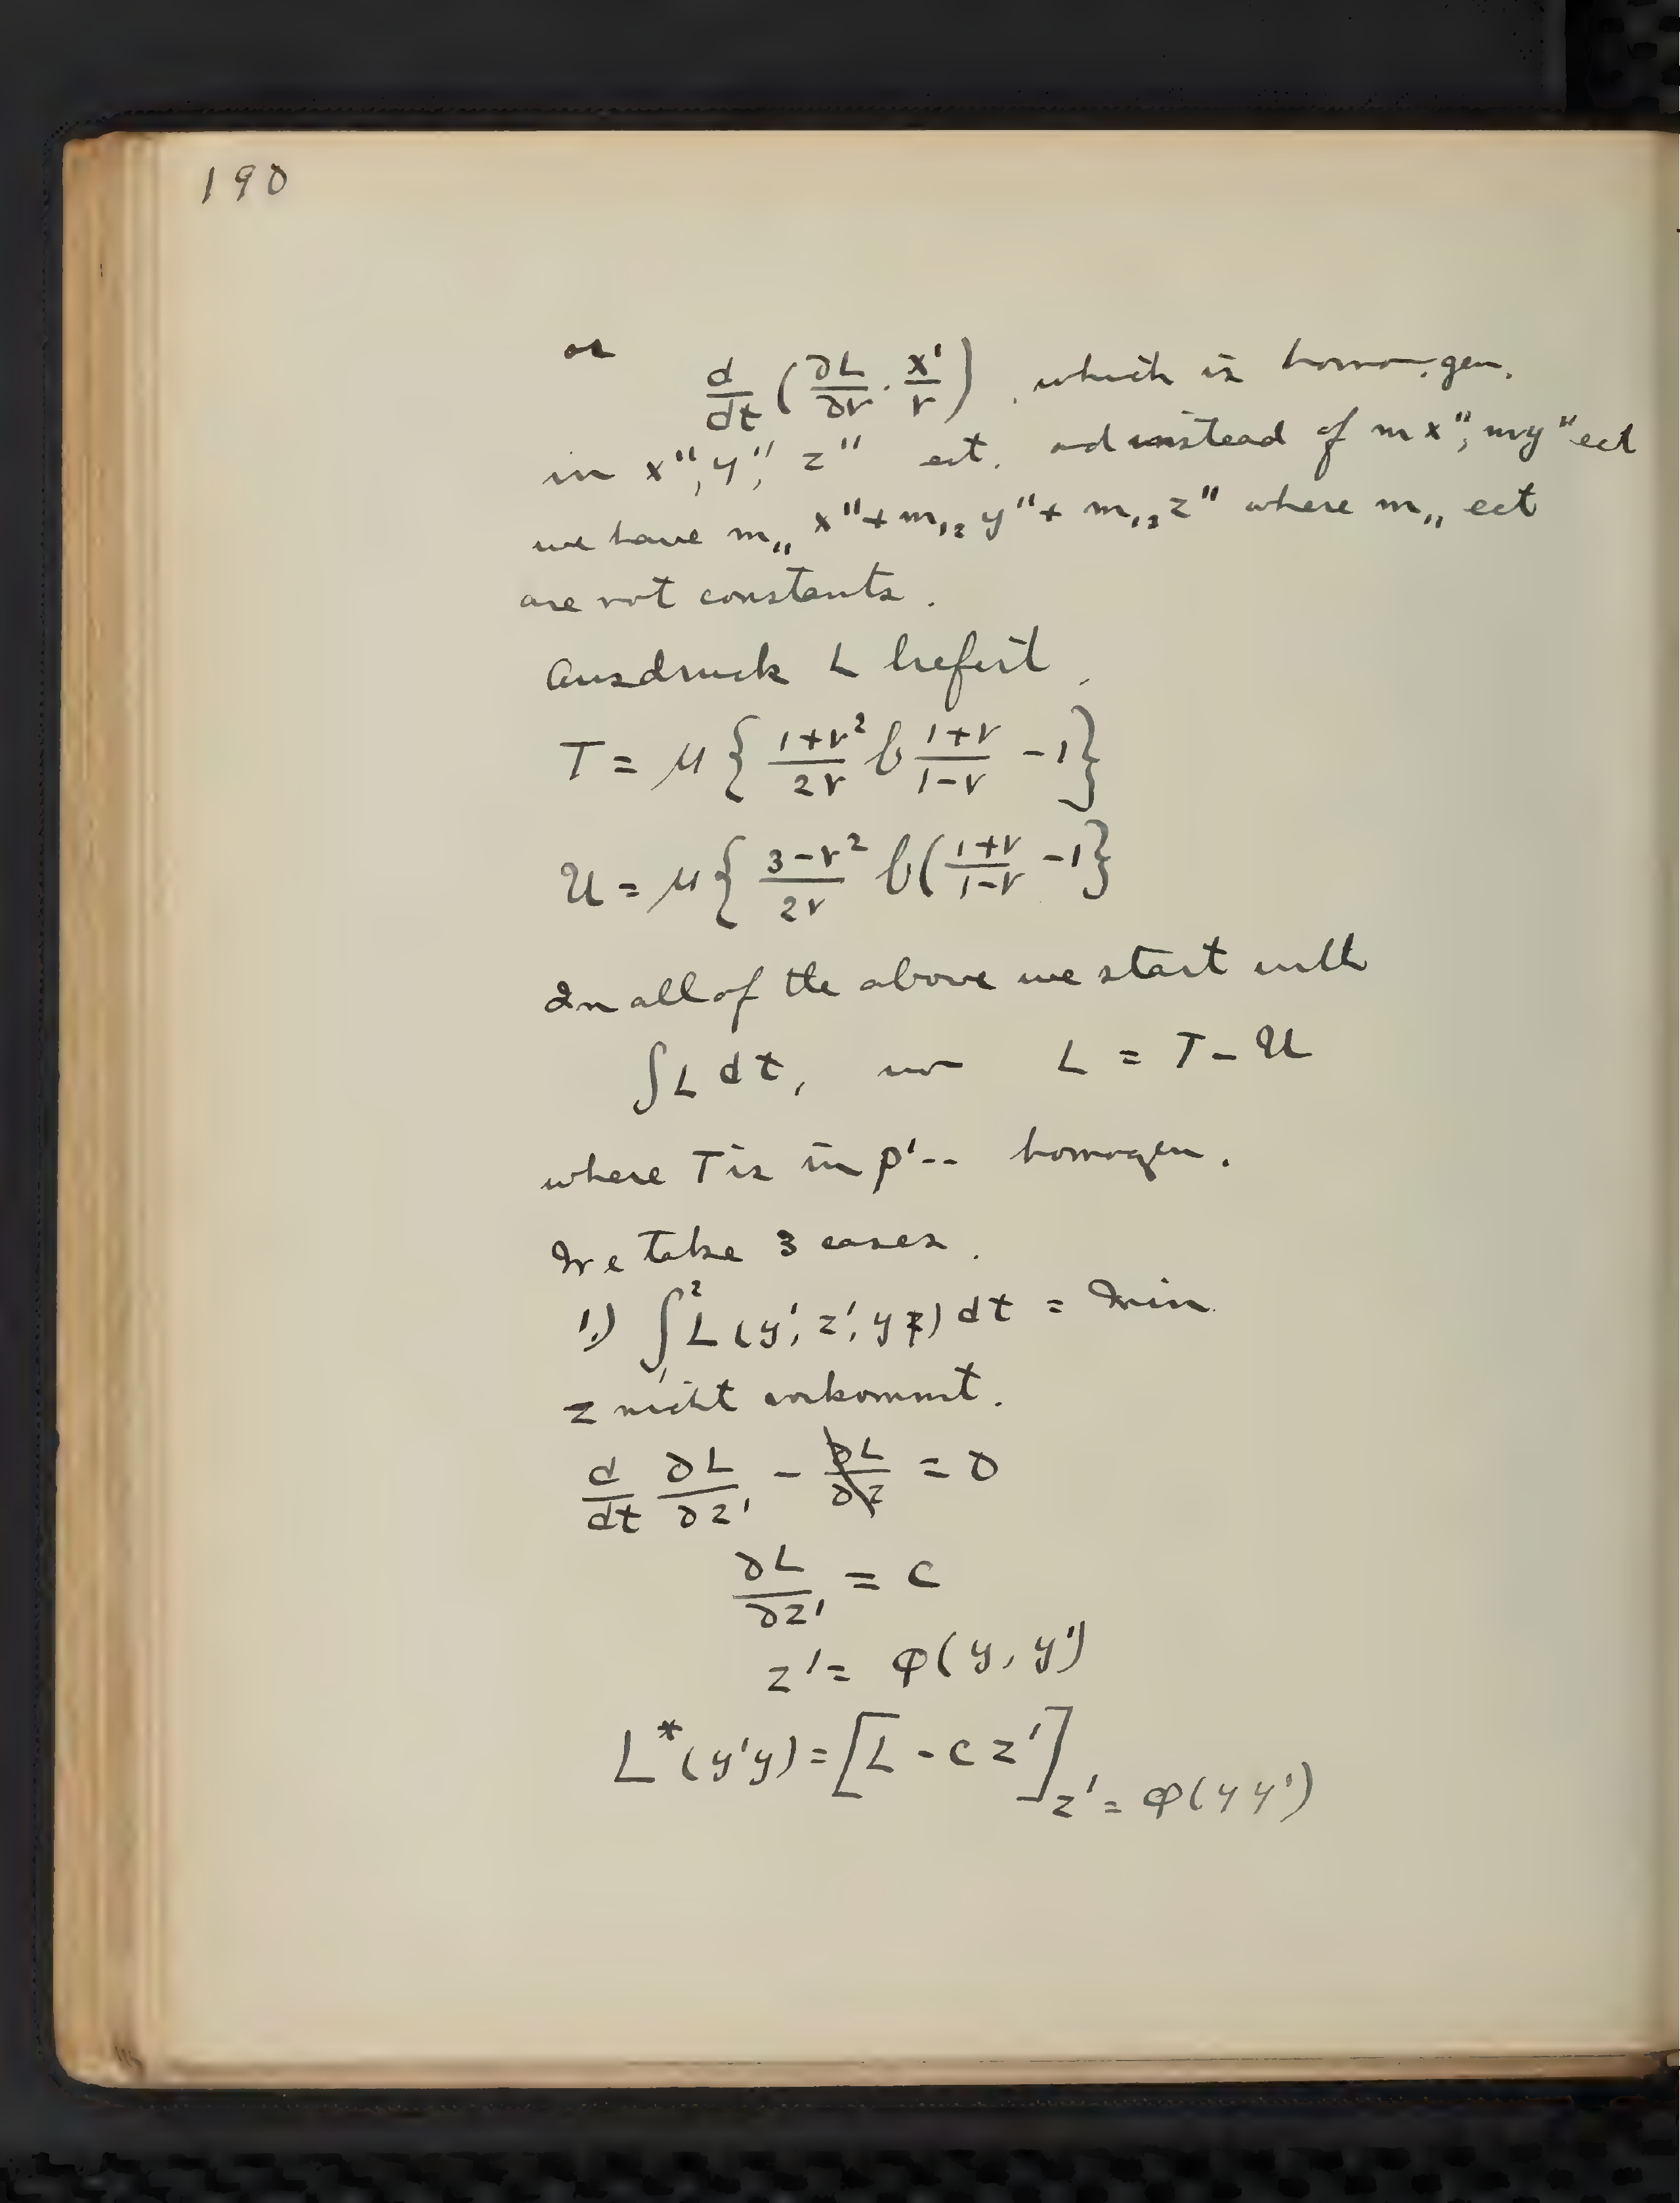 190
or
d/dt (∂L/∂v · x'/v), which is homogen.
in x'', y'', z'' ect. and instead of mx'', my'' ect
we have m₁₁ x'' + m₁₂ y'' + m₁₃ z'' where m₁₁ ect
are not constants.
Ausdruck L liefert
T = μ { (1+v²)/2v lg (1+v)/(1-v) - 1}
U = μ { (3-v²)/2v lg( (1+v)/(1-v) - 1}
In all of the above we start with
∫L dt, wo L = T - U
where T is in p'-- homogen.
We take 3 cases.
1.) ∫₁² L(y', z', y z) dt = Min
z nicht vorkommt.
d/dt ∂L/∂z' - ∂L/∂z = 0
∂L/∂z' = c
z' = φ(y, y')
L*(y'y) = [L - c z'] z' = φ(y y')